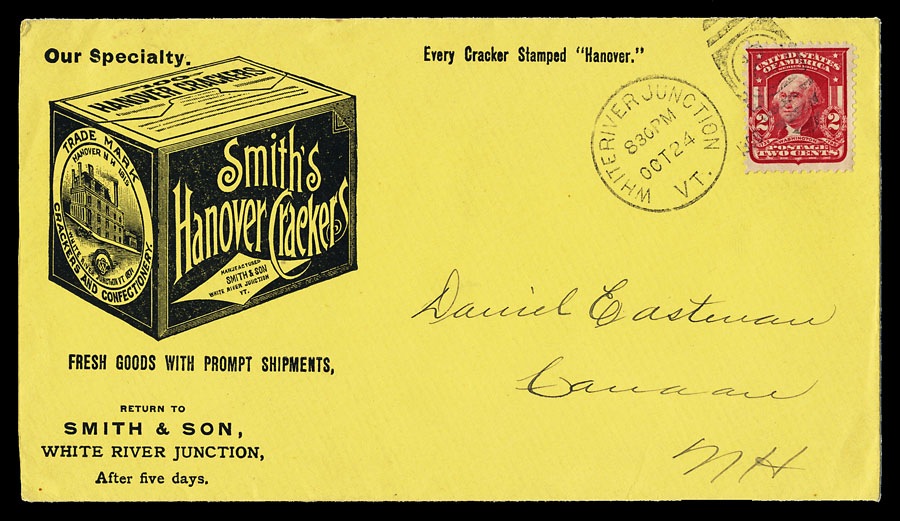 Our Specialty.
Every Cracker Stamped "Hanover."
HANOVER CRACKERS
TRADE MARK
HANOVER N.H.
CRACKERS AND CONFECTIONERY.
Smith's
Hanover Crackers
MANUFACTURED
SMITH & SON
WHITE RIVER JUNCTION
VT.
FRESH GOODS WITH PROMPT SHIPMENTS,
RETURN TO
SMITH & SON,
WHITE RIVER JUNCTION,
After five days.
WHITE RIVER JUNCTION
830PM
OCT 24
VT.
UNITED STATES
OF AMERICA
2 2
POSTAGE
TWO CENTS
Daniel Eastman
Canaan
NH